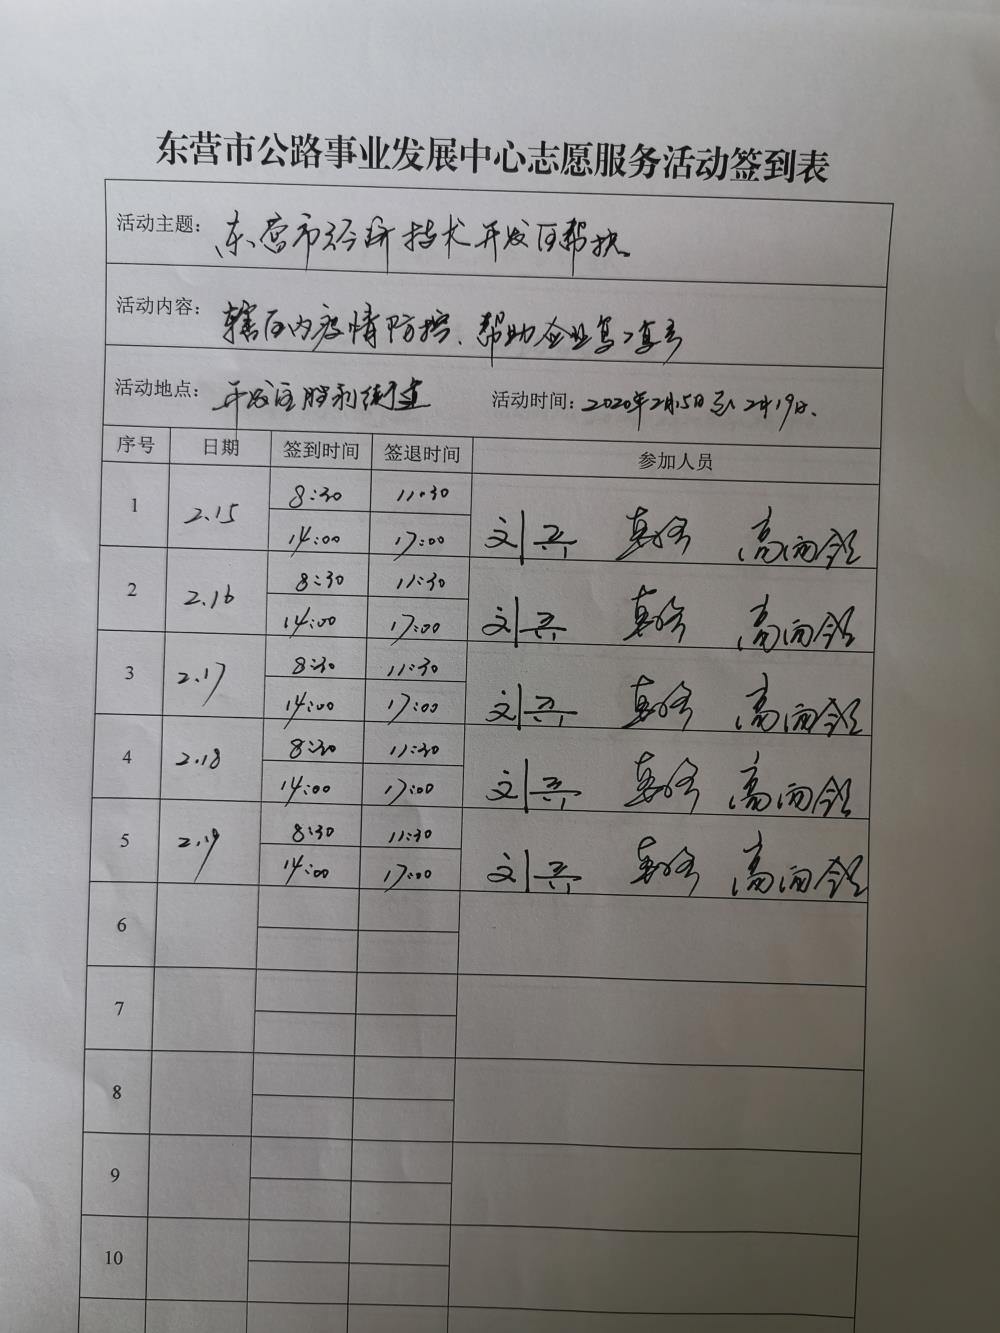 东营市公路事业发展中心志愿服务活动签到表
活动主题: 东营市经济技术开发区帮扶
活动内容: 辖区内疫情防控、帮助企业复工复产
活动地点: 开发区胜利街道 活动时间: 2020年2月15日至2月19日.
序号 日期 签到时间 签退时间 参加人员
1 2.15 8:30 11:30
14:00 17:00 刘 高雨
2 2.16 8:30 11:30
14:00 17:00 刘 高雨
3 2.17 8:30 11:30
14:00 17:00 刘 高雨
4 2.18 8:30 11:30
14:00 17:00 刘 高雨
5 2.19 8:30 11:30
14:00 17:00 刘 高雨
6
7
8
9
10